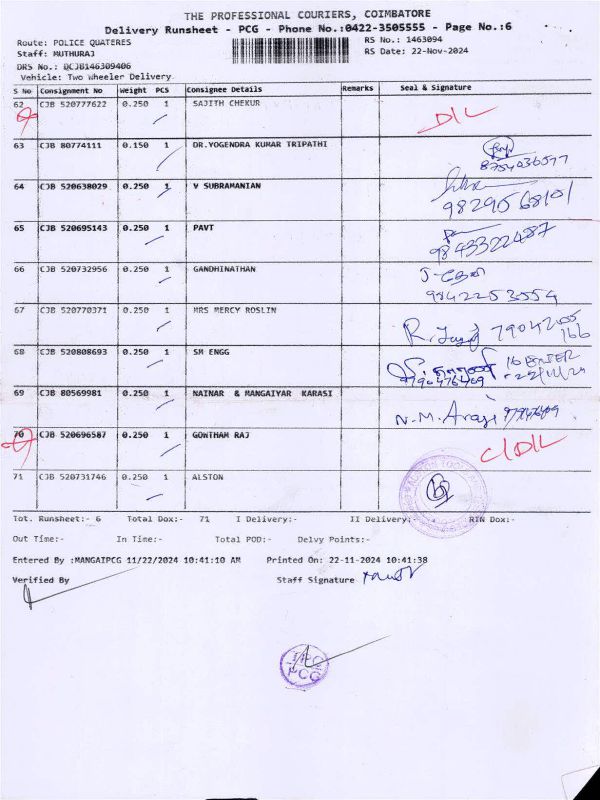 THE PROFESSIONAL COURIERS, COIMBATORE
Delivery Runsheet - PCG - Phone No.:0422-3505555 - Page No.:6
Route: POLICE QUATERES RS No.: 1463094
Staff: MUTHURAJ RS Date: 22-Nov-2024
DRS No.: DCJB146309406
Vehicle: Two Wheeler Delivery
S No Consignment No Weight PCS Consignee Details Remarks Seal & Signature
62 CJB 520777622 0.250 1 SAJITH CHEKUR D/L
63 CJB 80774111 0.150 1 DR.YOGENDRA KUMAR TRIPATHI
8754036577
64 CJB 520638029 0.250 1 V SUBRAMANIAN
9829568101
65 CJB 520695143 0.250 1 PAVT
9843322487
66 CJB 520732956 0.250 1 GANDHINATHAN
9842253554
67 CJB 520770371 0.250 1 MRS MERCY ROSLIN
79042055
166
68 CJB 520808693 0.250 1 SM ENGG
69 CJB 80569981 0.250 1 NAINAR & MANGAIYAR KARASI N.M.
70 CJB 520696587 0.250 1 GONTHAM RAJ C/D/L
71 CJB 520731746 0.250 1 ALSTON
Tot. Runsheet:- 6 Total Dox:- 71 I Delivery:- II Delivery:- RTN Dox:-
Out Time:- In Time:- Total POD:- Delvy Points:-
Entered By :MANGAIPCG 11/22/2024 10:41:10 AM Printed On: 22-11-2024 10:41:38
Verified By Staff Signature
PCG